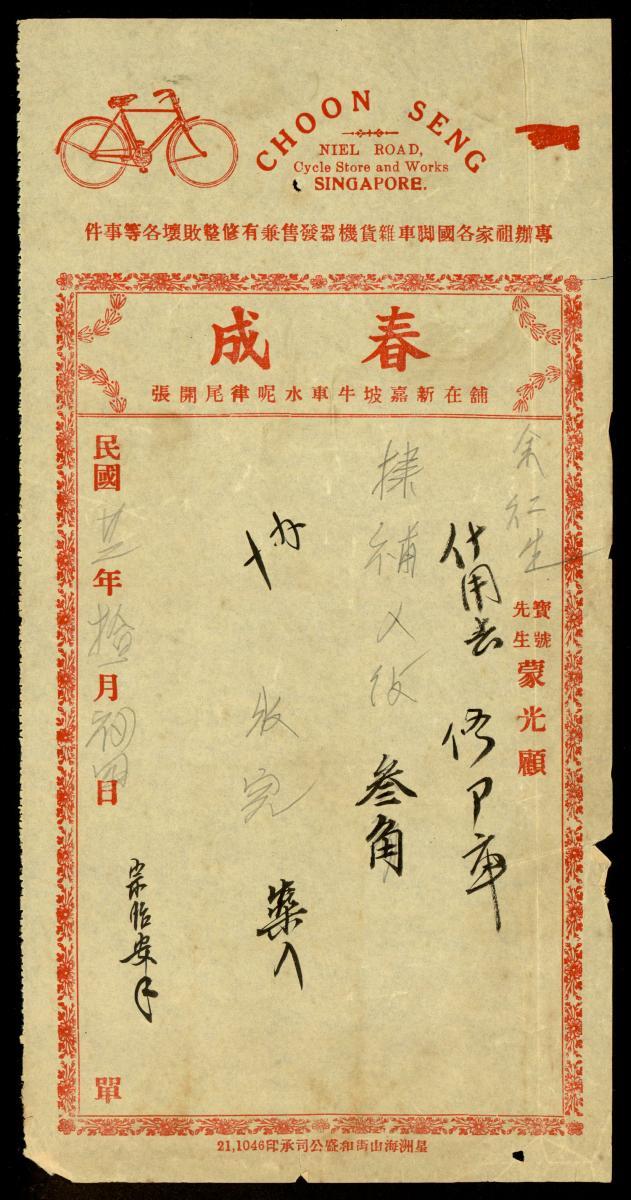 CHOON SENG
NIEL ROAD,
Cycle Store and Works
SINGAPORE.
專辦祖家各國脚車雜貨機器發售兼有修整敗壞各等事件
春成
舖在新嘉坡牛車水呢律尾開張
余仁生
寶號
先生
蒙光顧
什用去
補
叁角
收完
入
民國廿三年拾一月初四日
單
星洲海山街和盛公司承印21,1046